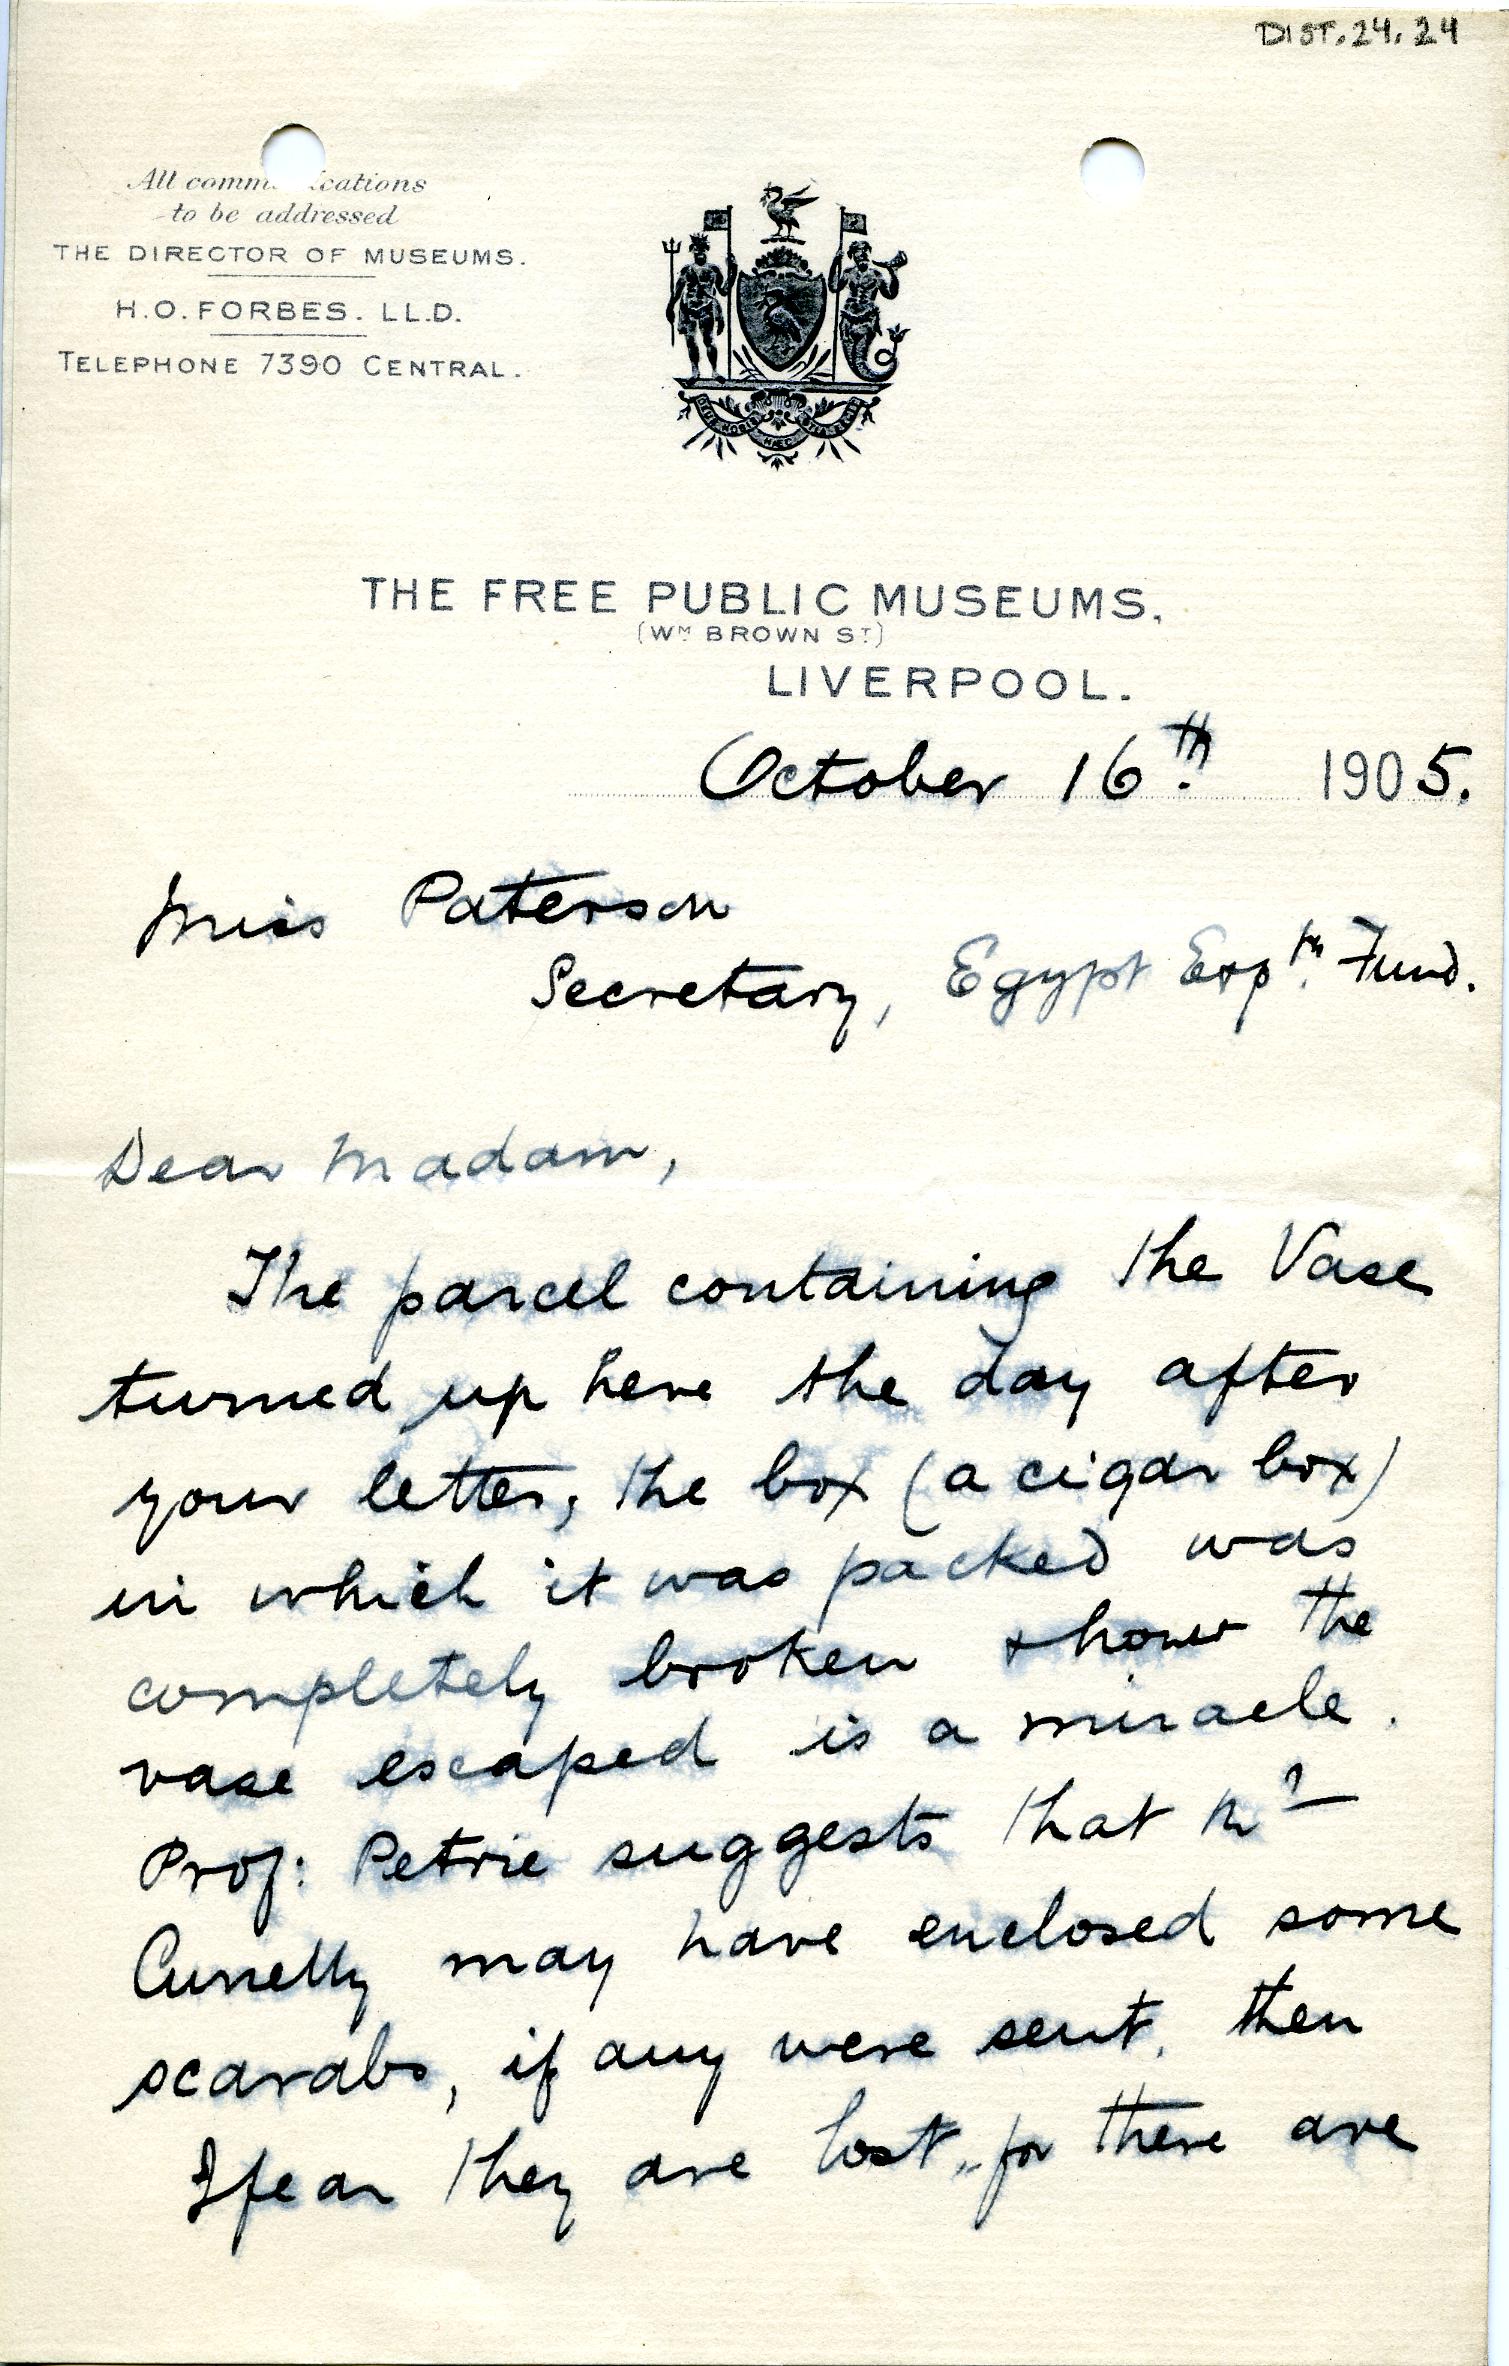 DIST. 24. 24
All comm cations
to be addressed
THE DIRECTOR OF MUSEUMS.
H.O. FORBES. LL.D.
TELEPHONE 7390 CENTRAL.
DEUS NOBIS HÆC OTIA FECIT
THE FREE PUBLIC MUSEUMS.
(WM BROWN ST)
LIVERPOOL.
October 16th. 1905.
Miss Paterson
Secretary, Egypt Exptn. Fund.
Dear Madam,
The parcel containing the Vase
turned up here the day after
your letter; the box (a cigar box)
in which it was packed was
completely broken & how the
vase escaped is a miracle.
Prof: Petrie suggests that Mr
Currelly may have enclosed some
scarabs, if any were sent, then
I fear they are lost, for there are